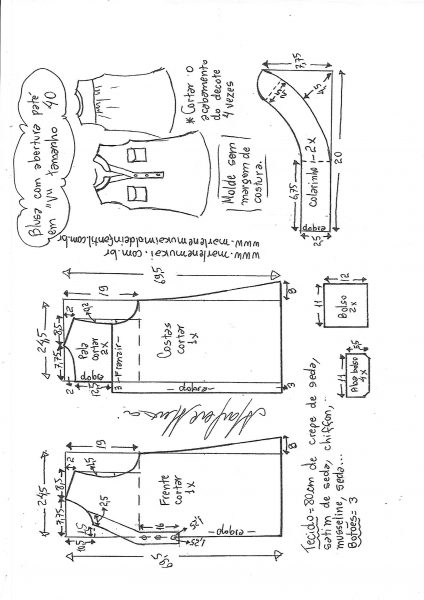 Blusa com abertura patê
em "V" tamanho
40
* Cortar o
acabamento
do decote
4 vezes
Molde sem
margem de
costura.
www.marlenemukai.com.br
www.marlenemukaimoldeinfantil.com.br
7,75
20
6,75
2,5
dobra
colarinho - 2x
24,5
7,75
8,5
2
19
69,5
Pala
cortar
2x
dobra
12,5
2
3
Franzir
Costas
cortar
1x
dobra
8
3
12
11
Bolso
2x
11
5,5
Aba bolso
4x
Marlene Mukai
24,5
7,75
8,5
2
19
10,5
2,5
16
1,25
Frente
cortar
1x
dobra
8
69,5
Tecido=80cm de crepe de seda,
satim de seda, chiffon,
musseline, seda...
Botões=3